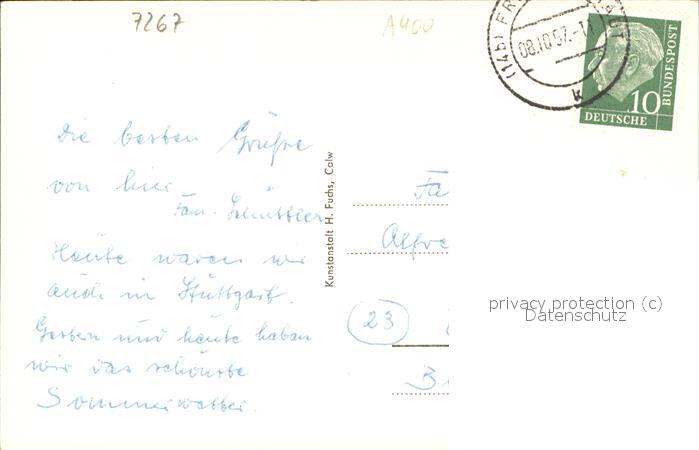 7267
A400
(14b) FR
08.10.57.-11
k
10
DEUTSCHE
BUNDESPOST
die besten Grüße
von hier
Fam.
Heute waren wir
auch in Stuttgart.
Gestern und heute haben
wir das schönste
Sommerwetter.
Kunstanstalt H. Fuchs, Calw
Fa
Alfre
23
B
privacy protection (c)
Datenschutz